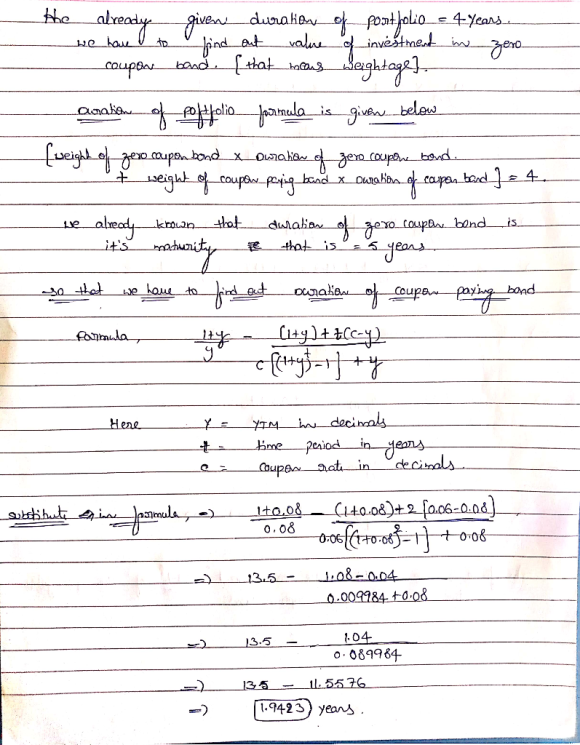 the already given duration of portfolio = 4 years.
we have to find out value of investment in zero
coupon bond. [that means weightage].
duration of portfolio formula is given below
[weight of zero coupon bond x duration of zero coupon bond.
+ weight of coupon paying bond x duration of coupon bond] = 4.
we already known that duration of zero coupon bond is
it's maturity that is = 5 years.
so that we have to find out duration of coupon paying bond
formula, (1+y)/y - ((1+y)+t(c-y))/(c[(1+y)^t-1]+y)
Here Y = YTM in decimals
t = time period in years
c = coupon rate in decimals.
substitute in formula, => (1+0.08)/0.08 - ((1+0.08)+2[0.06-0.08])/(0.06[(1+0.08)^2-1]+0.08)
=> 13.5 - (1.08-0.04)/(0.009984+0.08)
=> 13.5 - 1.04/0.089984
=> 13.5 - 11.5576
=> 1.9423 years.